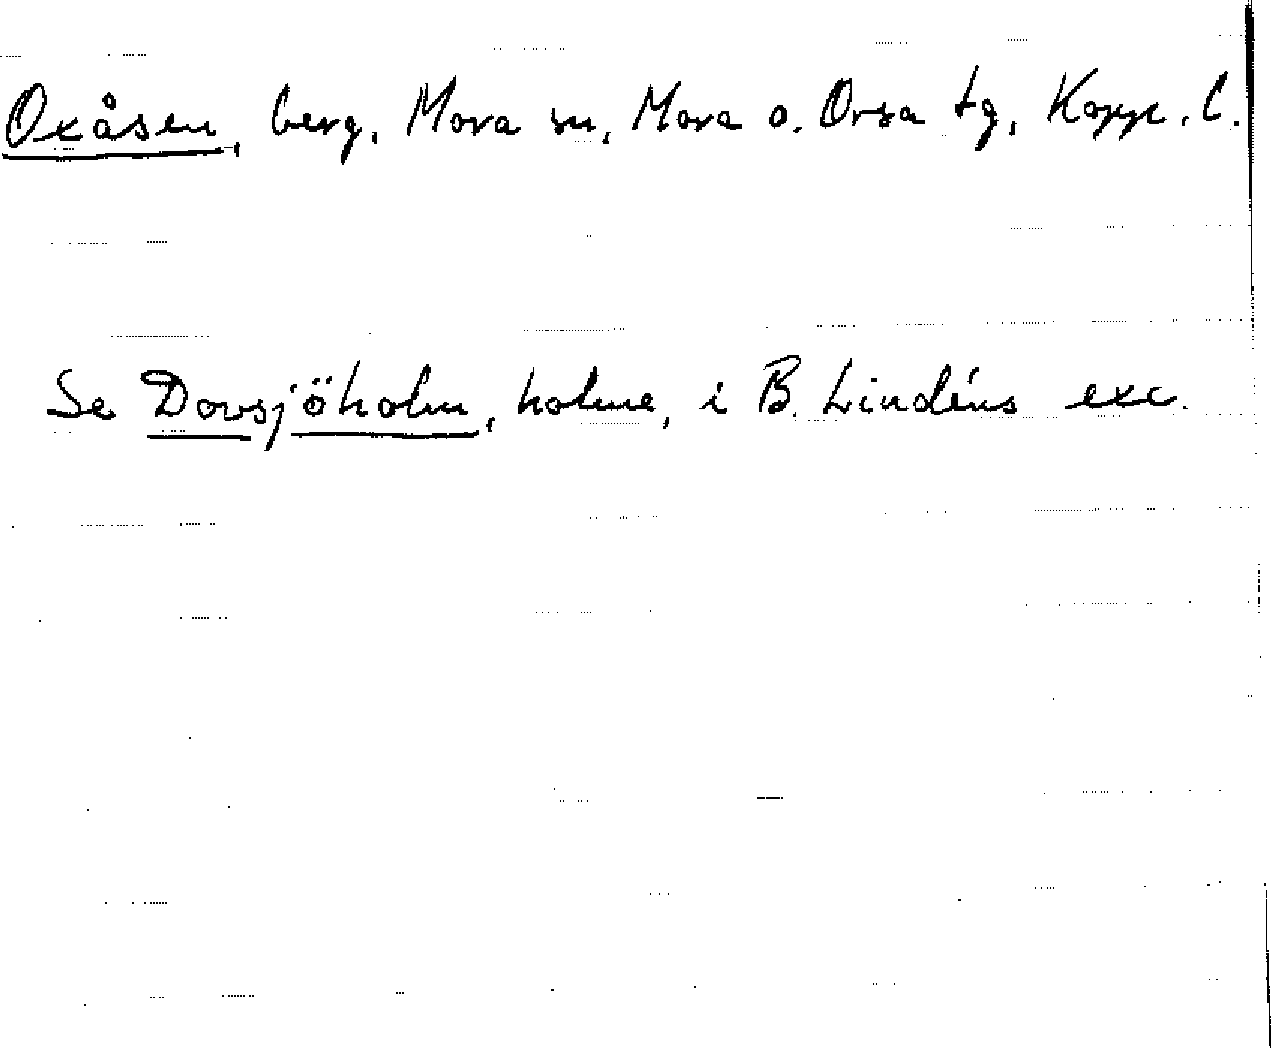 Oxåsen, berg, Mora sn, Mora o. Orsa tg, Kopp. l.
Se Dovsjöholm, holme, i B. Lindéns exc.